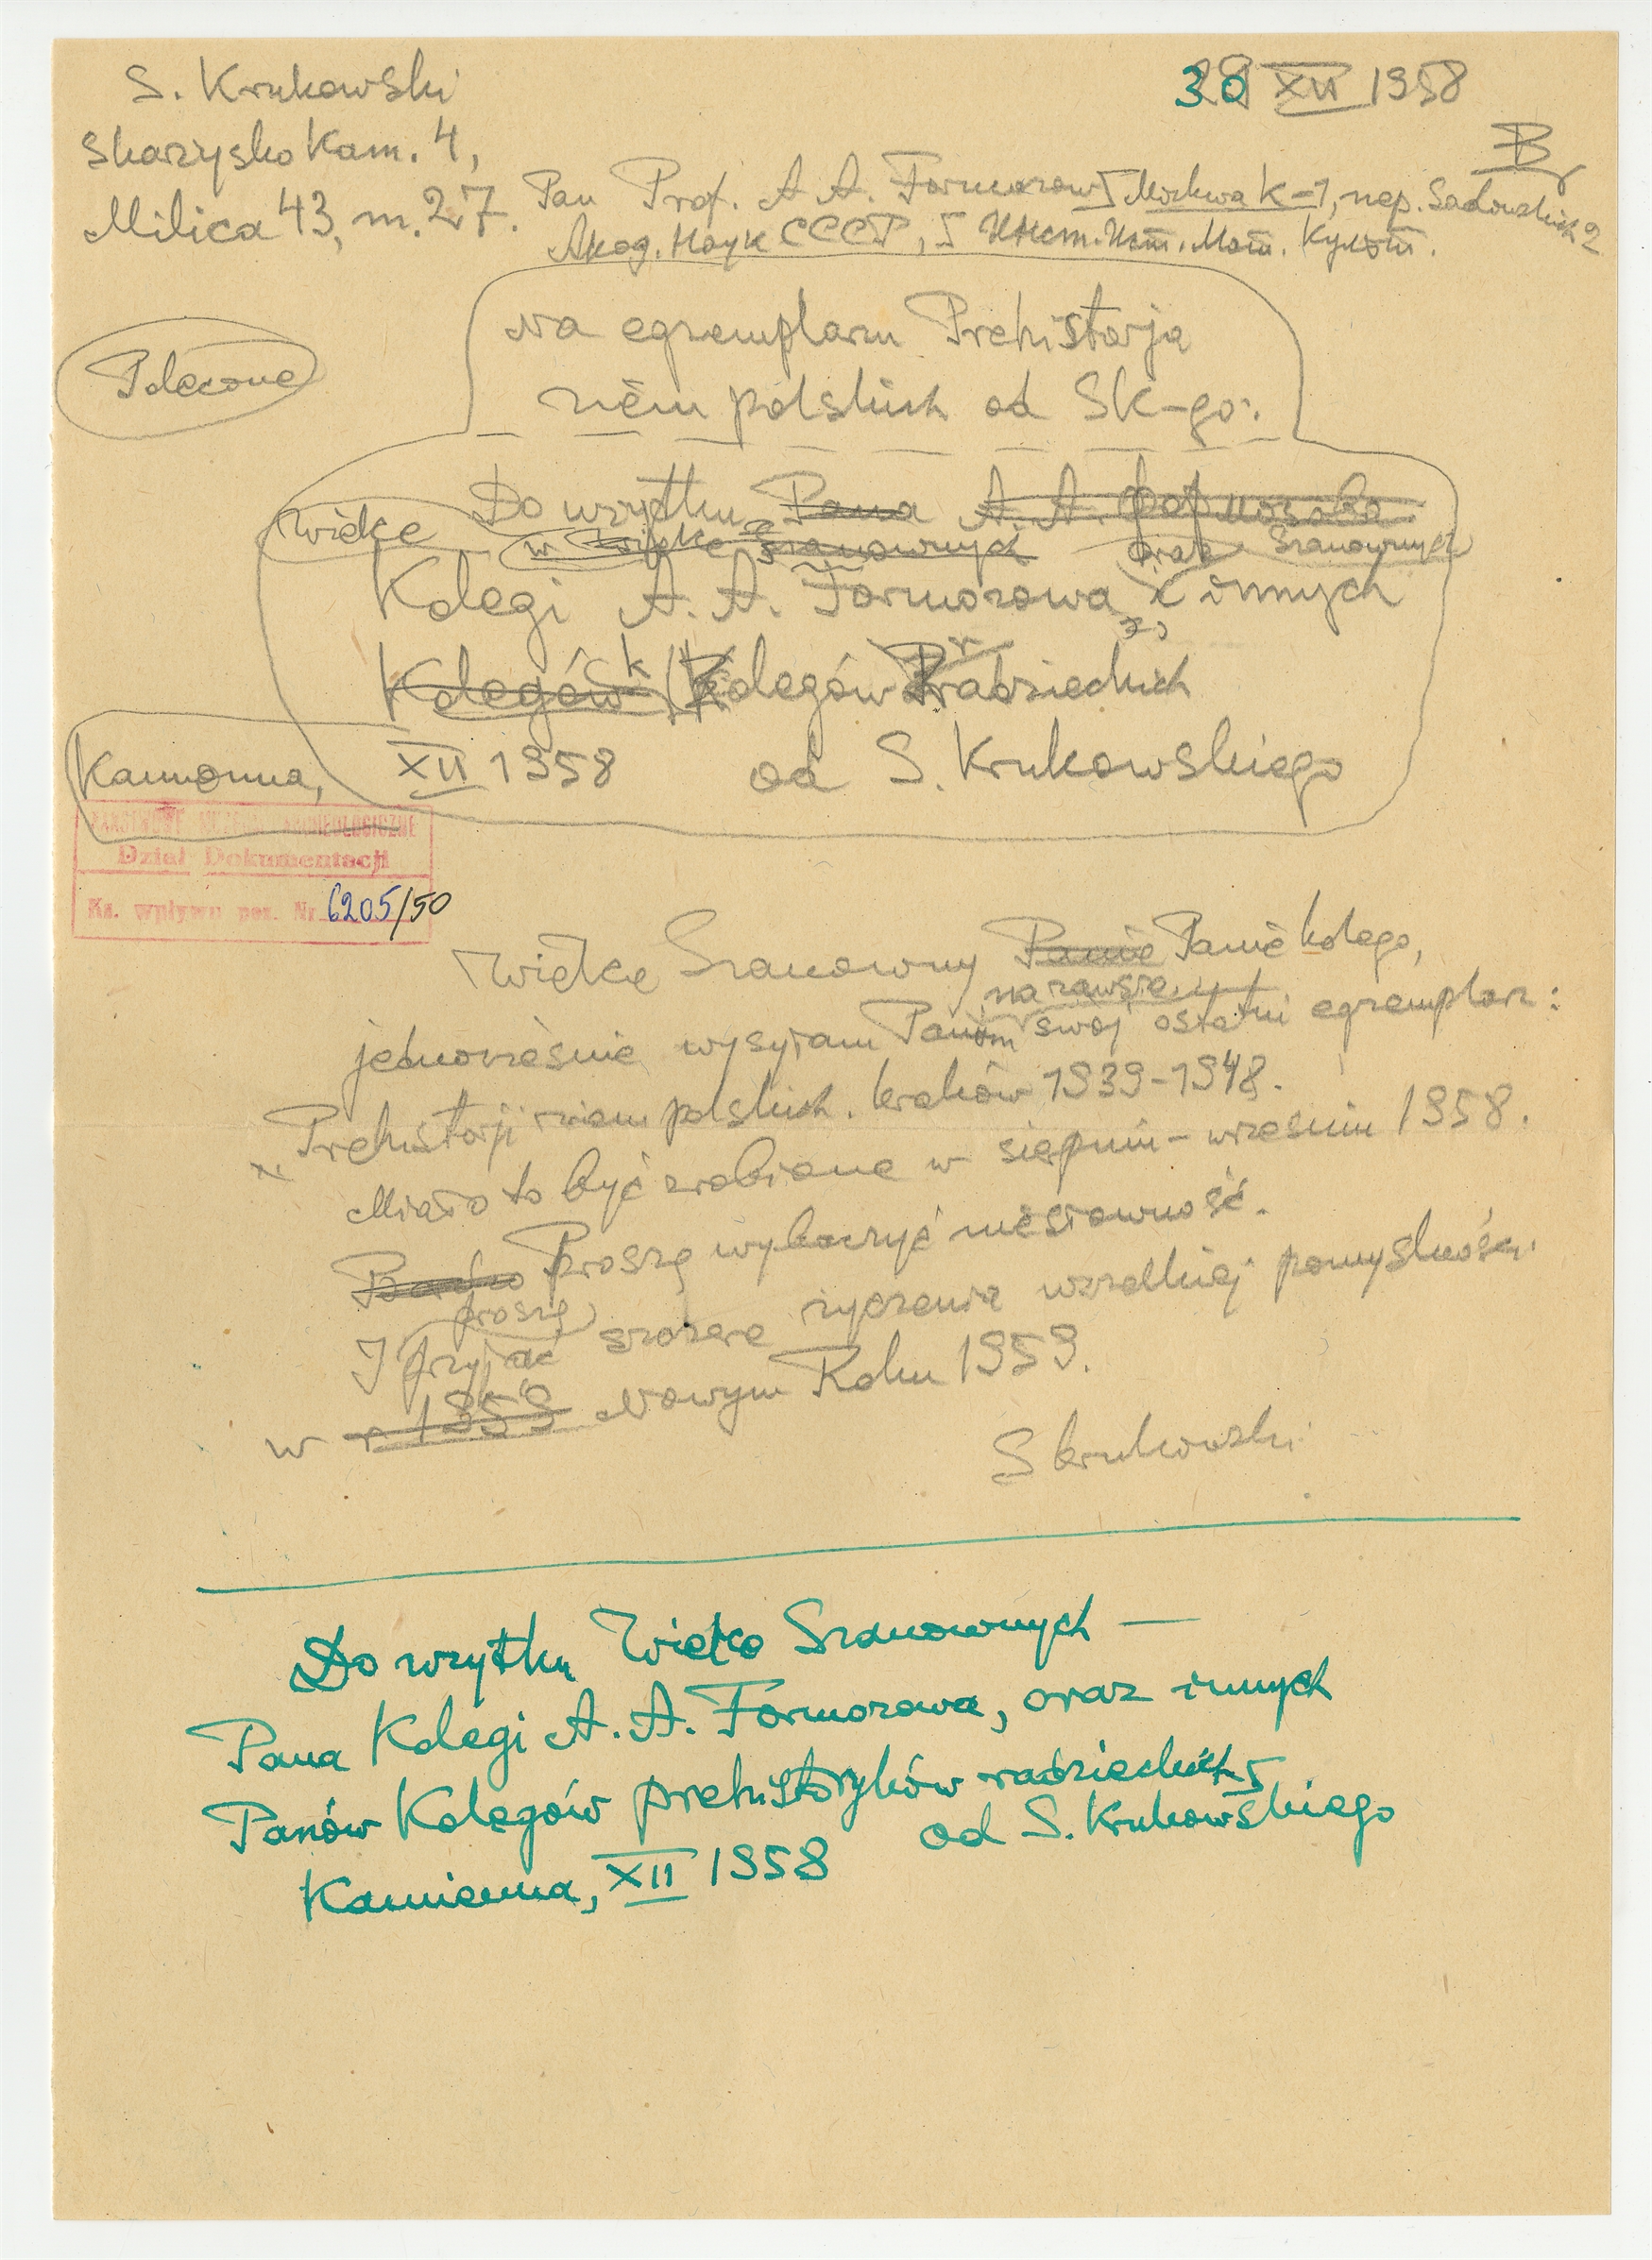 S. Krukowski
Skarżysko Kam. 4,
Milica 43, m. 27.
30 XII 1958
Pan Prof. A. A. Formozow, Moskwa K-1, пер. Sadowskich 2
Акад. Наук СССР, Инст. Ист. Мат. Культ.
Polecone
Na egzemplarzu Prehistorja
ziem polskich od SK-go:
Do użytku Pana A. A. Формозова
Wielce w Wielce Szanownych oraz Szanownych
Kolegi A. A. Formozowa, i innych
Kolegów Kolegów Radzieckich
Kamienna, XII 1958 od S. Krukowskiego
PAŃSTWOWE MUZEUM ARCHEOLOGICZNE
Dział Dokumentacji
Ks. wpływu poz. Nr 6205/50
Wielce Szanowny Panie Panie kolego,
na zawsze
jednocześnie wysyłam Panom swój ostatni egzemplarz:
Prehistorji ziem polskich. Kraków 1939-1948.
Miało to być zrobione w sierpniu-wrześniu 1958.
Bardzo Proszę wybaczyć niesłowność.
proszę
I przyjąć szczere życzenia wszelkiej pomyślności
w r 1959 Nowym Roku 1959.
S Krukowski
Do użytku Wielce Szanownych —
Pana Kolegi A. A. Formozowa, oraz innych
Panów Kolegów prehistoryków radzieckich
od S. Krukowskiego
Kamienna, XII 1958